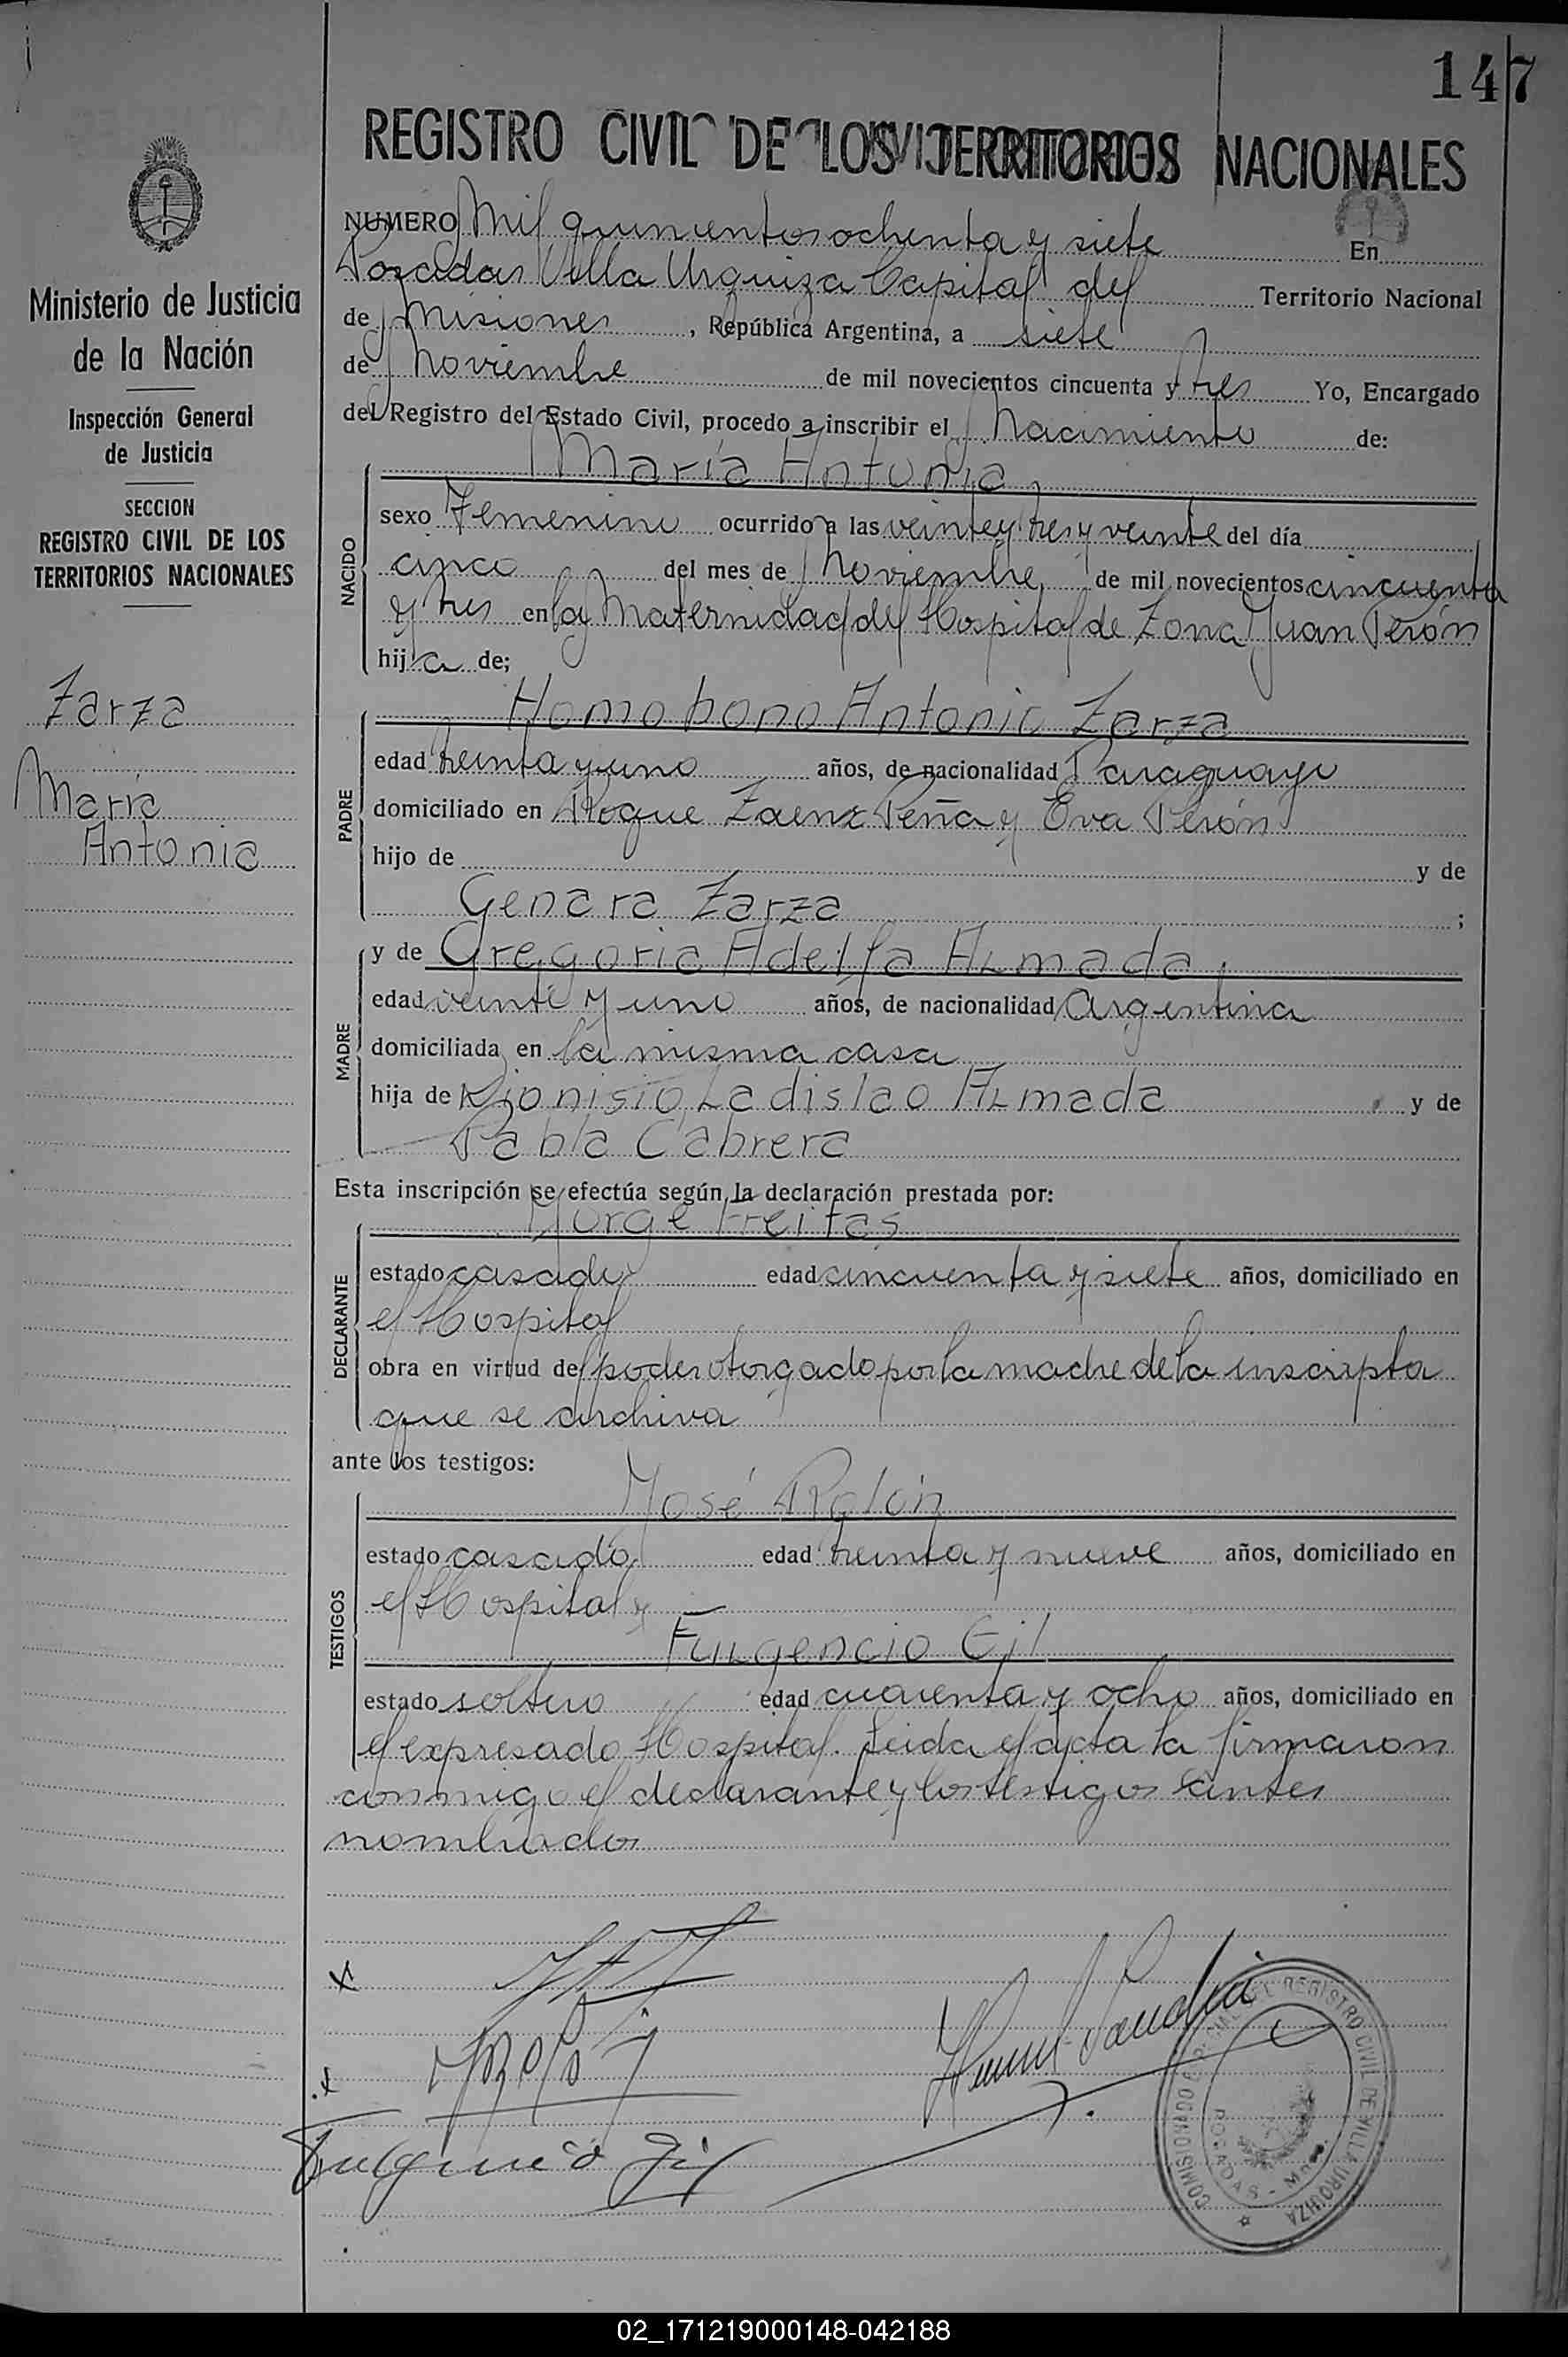 147
REGISTRO CIVIL DE LOS TERRITORIOS NACIONALES
Ministerio de Justicia
de la Nación
Inspección General
de Justicia
SECCION
REGISTRO CIVIL DE LOS
TERRITORIOS NACIONALES
Zarza
María
Antonia
NUMERO Mil quinientos ochenta y siete En
Posadas Villa Urquiza Capital del Territorio Nacional
de Misiones, República Argentina, a siete
de Noviembre de mil novecientos cincuenta y tres Yo, Encargado
del Registro del Estado Civil, procedo a inscribir el Nacimiento de:
NACIDO
María Antonia
sexo Femenino ocurrido a las veinte y tres y veinte del día
cinco del mes de Noviembre de mil novecientos cincuenta
y tres en la Maternidad del Hospital de Zona Juan Perón
hija de;
PADRE
Homobono Antonio Zarza
edad treinta y uno años, de nacionalidad Paraguayo
domiciliado en Roque Zaenz Peña y Eva Perón
hijo de y de
Genara Zarza ;
MADRE
y de Gregoria Adelfa Almada,
edad veinte y uno años, de nacionalidad Argentina
domiciliada en la misma casa
hija de Dionisio Ladislao Almada y de
Pabla Cabrera
Esta inscripción se efectúa según la declaración prestada por:
DECLARANTE
Jorge Freitas
estado casado edad cincuenta y siete años, domiciliado en
el Hospital
obra en virtud del poder otorgado por la madre de la inscripta
que se archiva
ante los testigos:
TESTIGOS
José Rolón
estado casado, edad treinta y nueve años, domiciliado en
el Hospital y
Fulgencio Gil
estado soltero edad cuarenta y ocho años, domiciliado en
el expresado Hospital. Leida el acta la firmaron
conmigo el declarante y los testigos antes
nombrados
Fulgencio Gil
REGISTRO CIVIL DE VILLA URQUIZA
COMISIONADO
POSADAS - Mnes.
02_171219000148-042188